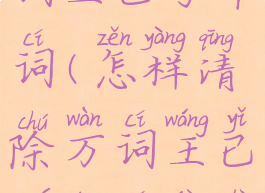 cí zěn yàng qīng
词(怎样清
chú wàn cí wáng yǐ
除万词王已